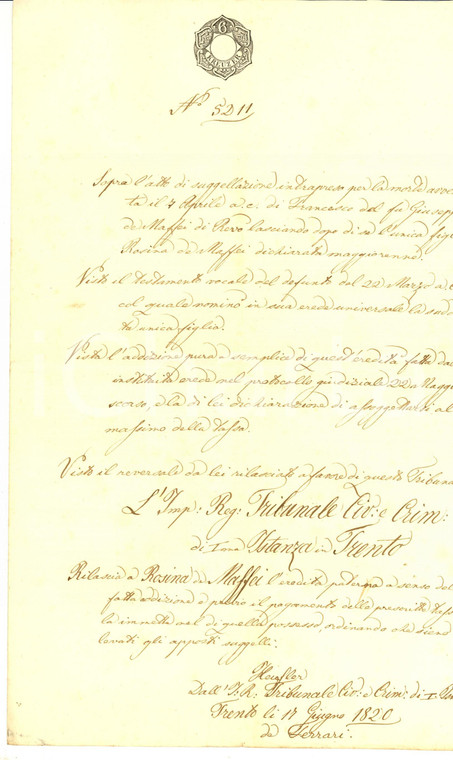 6
KREUZER
N.º 5211
Sopra l'atto di suggellazione intrapreso per la morte avve
ta il 4 Aprile a. c. di Francesco del fu Giusepp
de Maffei di Revò lasciando dopo di se l'unica figl
Rosina de Maffei dichiarata maggiorenne.
Visto il testamento vocale del defunto del 22 Marzo a. c
col quale nominò in sua erede universale la sud
ta unica figlia.
Vista l'addizione pura e semplice di quest'eredità fatta da
instituita erede nel protocollo giudiziale 22 Magg
scorso, e la di lei dichiarazione di assoggettarsi al
massimo della tassa.
Visto il reversale da lei rilasciato a favore di questo Tribuna
L'Imp: Reg: Tribunale Civ: e Crim:
di Ima Istanza in Trento
Rilascia a Rosina de Maffei l'eredità paterna a senso del
fatta addizione e previo il pagamento delle prescritte tas
la immette nel di quella possesso, ordinando che siano
levati gli apposti suggelli.
Heufler
Dall'I: R: Tribunale Civ: e Crim: di I
Trento li 17 Giugno 1820
de Ferrari.